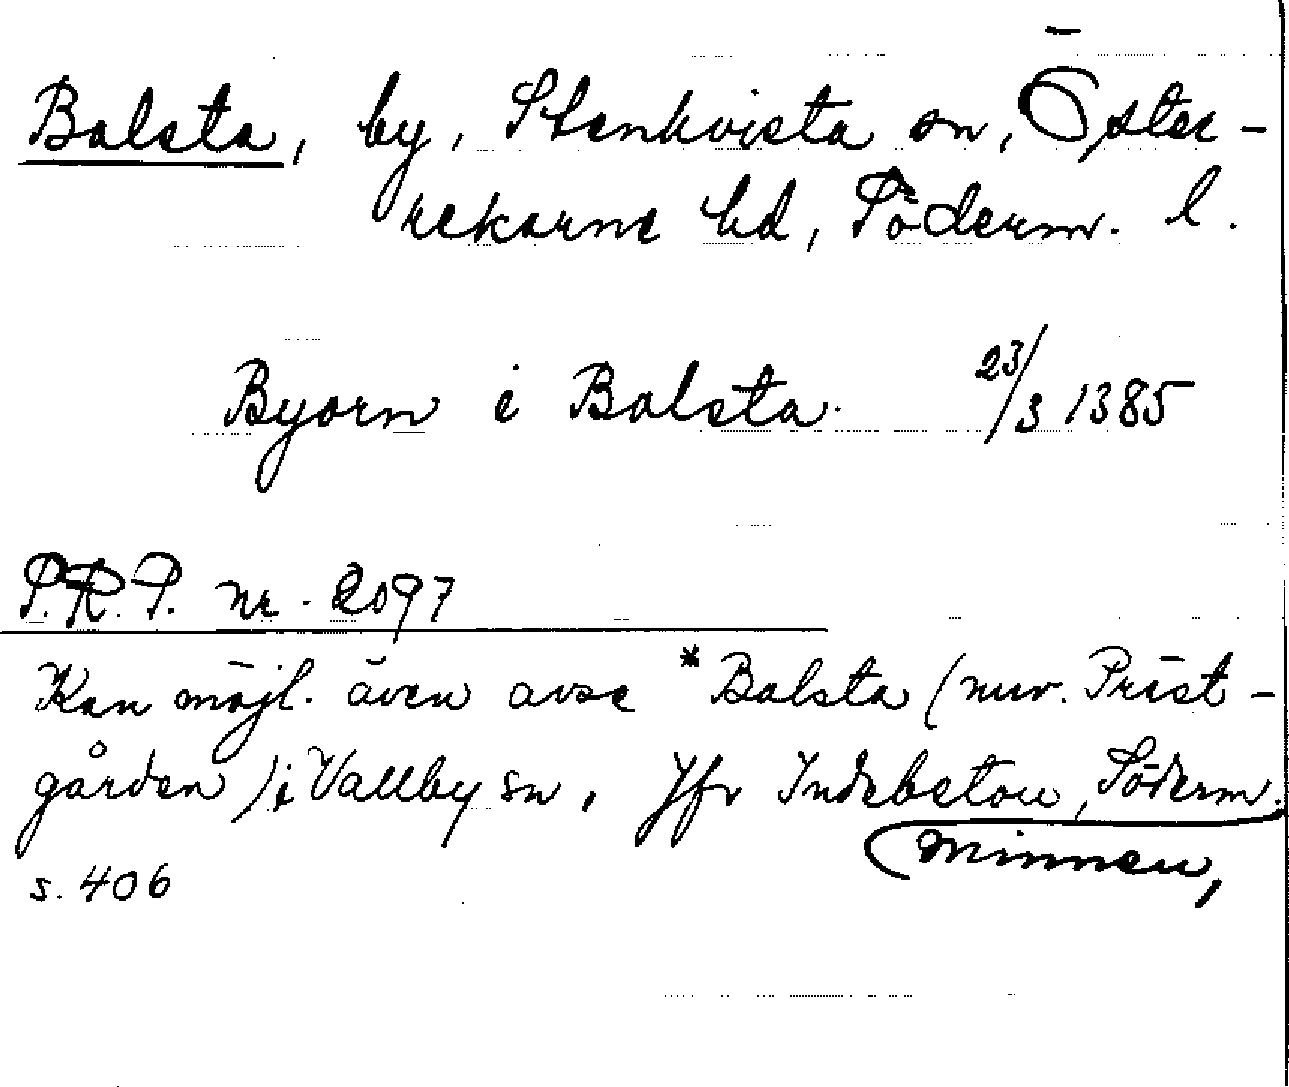 Balsta, by, Stenkvista sn, Öster-
rekarne hd, Söderm. l.
Byorn i Balsta 23/3 1385
P.R.P. nr. 2097
Kan möjl. även avse *Balsta (nuv. Präst-
gården) i Vallby sn, Jfr Indebetou, Söderm.
minnen,
s. 406